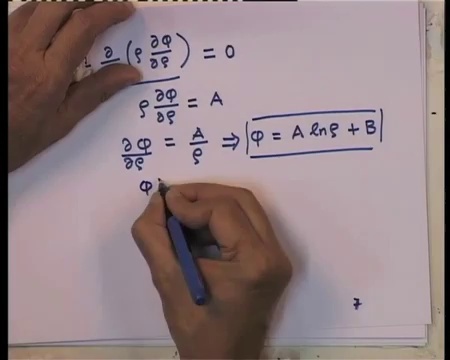 ∂/∂ (ρ ∂φ/∂ρ) = 0
ρ ∂φ/∂ρ = A
∂φ/∂ρ = A/ρ ⇒ φ = A ln ρ + B
φ
7